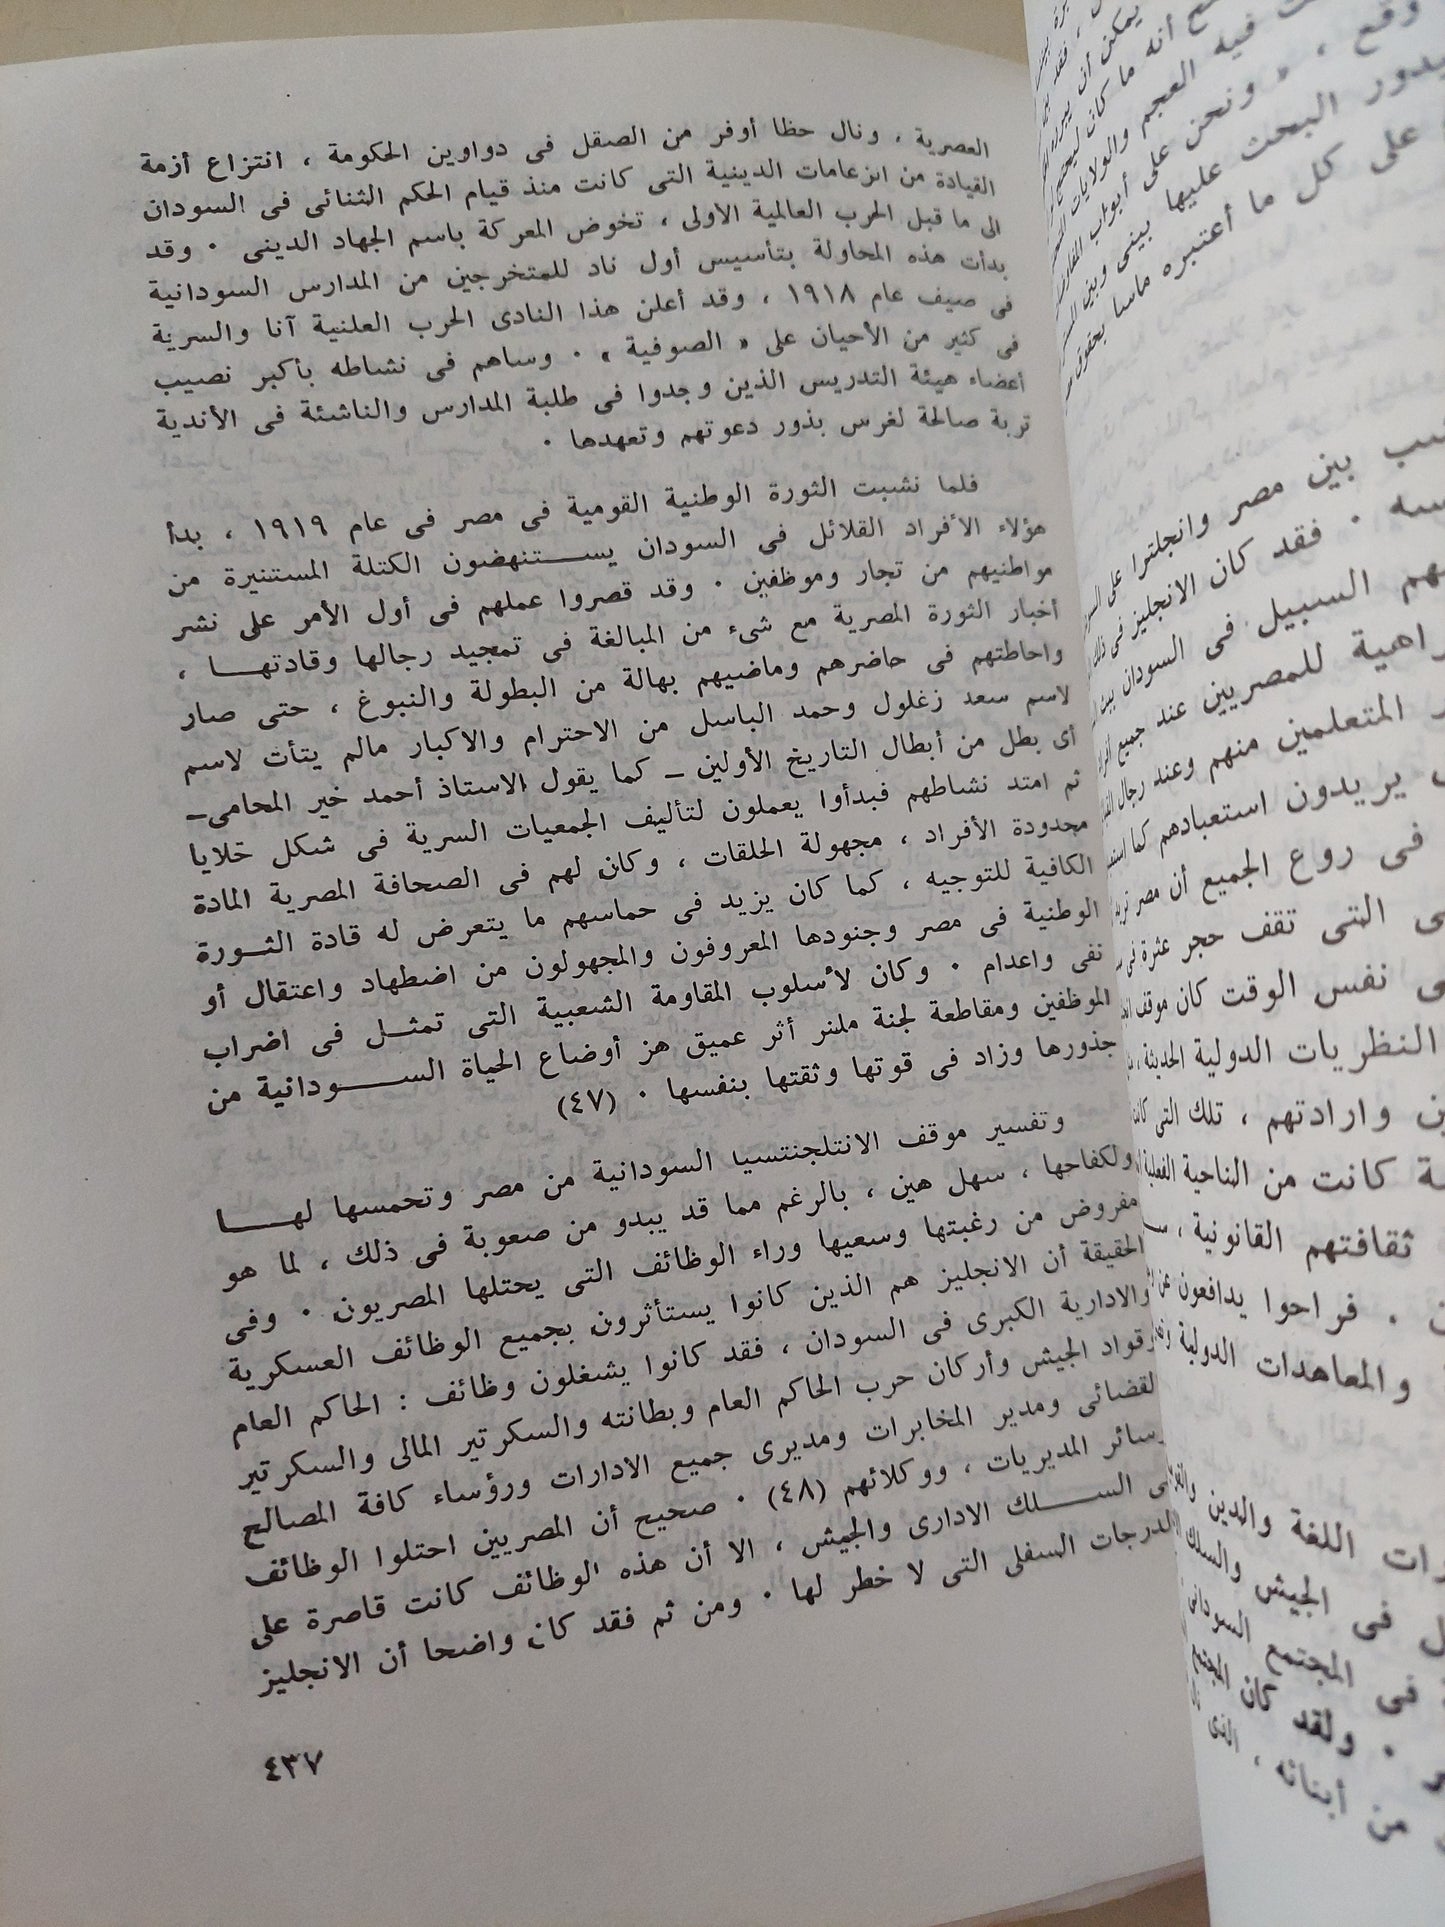 العصرية ، ونال حظا أوفر من الصقل فى دواوين الحكومة ، انتزاع أزمة
القيادة من الزعامات الدينية التى كانت منذ قيام الحكم الثنائى فى السودان
الى ما قبل الحرب العالمية الأولى ، تخوض المعركة باسم الجهاد الدينى . وقد
بدأت هذه المحاولة بتأسيس أول ناد للمتخرجين من المدارس السودانية
فى صيف عام ١٩١٨ ، وقد أعلن هذا النادى الحرب العلنية آنا والسرية
فى كثير من الأحيان على « الصوفية » . وساهم فى نشاطه بأكبر نصيب
أعضاء هيئة التدريس الذين وجدوا فى طلبة المدارس والناشئة فى الأندية
تربة صالحة لغرس بذور دعوتهم وتعهدها .
فلما نشبت الثورة الوطنية القومية فى مصر فى عام ١٩١٩ ، بدأ
هؤلاء الأفراد القلائل فى السودان يستنهضون الكتلة المستنيرة من
مواطنيهم من تجار وموظفين . وقد قصروا عملهم فى أول الأمر على نشر
أخبار الثورة المصرية مع شىء من المبالغة فى تمجيد رجالها وقادتها ،
واحاطتهم فى حاضرهم وماضيهم بهالة من البطولة والنبوغ ، حتى صار
لاسم سعد زغلول وحمد الباسل من الاحترام والاكبار مالم يتأت لاسم
أى بطل من أبطال التاريخ الأولين ــ كما يقول الاستاذ أحمد خير المحامى ــ
ثم امتد نشاطهم فبدأوا يعملون لتأليف الجمعيات السرية فى شكل خلايا
محدودة الأفراد ، مجهولة الحلقات ، وكان لهم فى الصحافة المصرية المادة
الكافية للتوجيه ، كما كان يزيد فى حماسهم ما يتعرض له قادة الثورة
الوطنية فى مصر وجنودها المعروفون والمجهولون من اضطهاد واعتقال أو
نفى واعدام . وكان لأسلوب المقاومة الشعبية التى تمثل فى اضراب
الموظفين ومقاطعة لجنة ملنر أثر عميق هز أوضاع الحياة السودانية من
جذورها وزاد فى قوتها وثقتها بنفسها . (٤٧)
وتفسير موقف الانتلجنتسيا السودانية من مصر وتحمسها لها
ولكفاحها ، سهل هين ، بالرغم مما قد يبدو من صعوبة فى ذلك ، لما هو
مفروض من رغبتها وسعيها وراء الوظائف التى يحتلها المصريون . وفى
الحقيقة أن الانجليز هم الذين كانوا يستأثرون بجميع الوظائف العسكرية
والادارية الكبرى فى السودان ، فقد كانوا يشغلون وظائف : الحاكم العام
وقواد الجيش وأركان حرب الحاكم العام وبطانته والسكرتير المالى والسكرتير
القضائى ومدير المخابرات ومديرى جميع الادارات ورؤساء كافة المصالح
وسائر المديريات ، ووكلائهم (٤٨) . صحيح أن المصريين احتلوا الوظائف
السلك الادارى والجيش ، الا أن هذه الوظائف كانت قاصرة على
الدرجات السفلى التى لا خطر لها . ومن ثم فقد كان واضحا أن الانجليز
٤٣٧
يمكن أن
أنه ما كان
فيه العجم والولايات
وقع ، « ونحن على أبواب
البحث عليها بينى وبين
على كل ما أعتبره ماسا بحقوق
بين مصر وانجلترا على
. فقد كان الانجليز فى ذلك
السبيل فى السودان
للمصريين عند جميع
المتعلمين منهم وعند رجال
يريدون استعبادهم كما
فى روع الجميع أن مصر
التى تقف حجر عثرة فى
نفس الوقت كان موقف
النظريات الدولية الحديثة ،
وارادتهم ، تلك التى
كانت من الناحية الفعلية
ثقافتهم القانونية ،
. فراحوا يدافعون عن
والمعاهدات الدولية
اللغة والدين
فى الجيش والسلك
فى المجتمع السودانى
. ولقد كان المجتمع
من أبنائه ، الذى